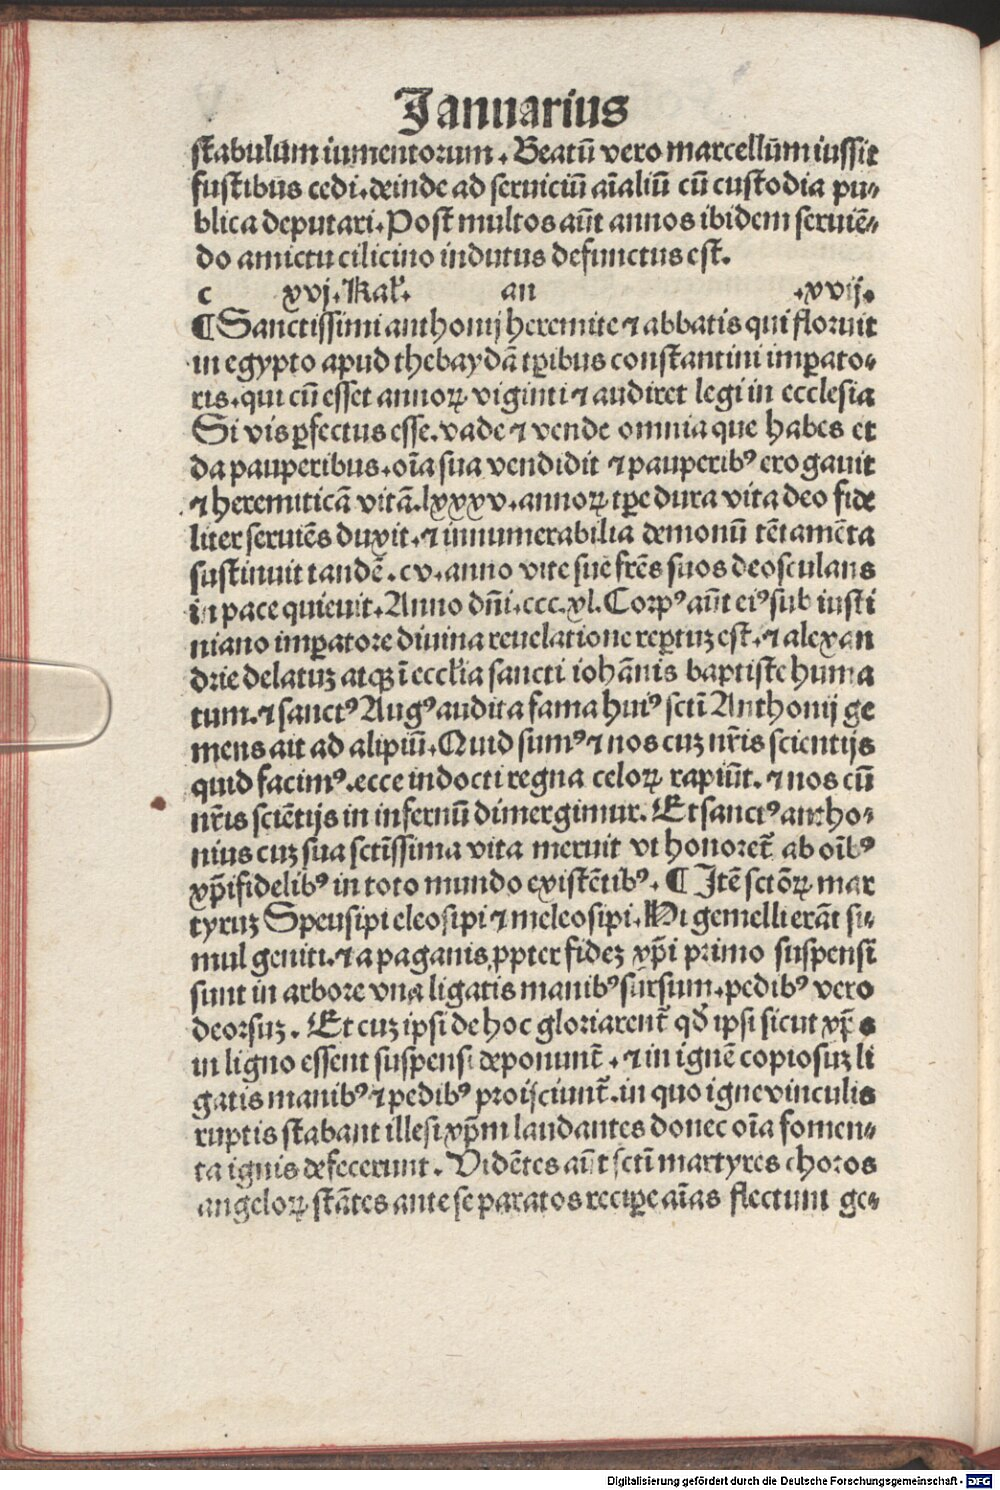 Januarius
stabulum iumentorum. Beatū vero marcellūm iussit
fustibus cedi. deinde ad seruiciū aīaliū cū custodia pu-
blica deputari. Post multos aūt annos ibidem seruiē-
do amictu cilicino indutus defunctus est.
c xvj. Kal'. an .xvij.
¶ Sanctissimi anthonij heremite ⁊ abbatis qui floruit
in egypto apud thebaydā tꝑibus constantini imꝑato-
ris. qui cū esset annoꝝ viginti ⁊ audiret legi in ecclesia
Si vis ꝑfectus esse. vade ⁊ vende omnia que habes et
da pauperibus. oīa sua vendidit ⁊ pauperibꝰ erogauit
⁊ heremiticā vitā. lxxxv. annoꝝ tꝑe dura vita deo fide
liter seruiēs duxit. ⁊ innumerabilia demonū tētamēta
sustinuit tandē. cv. anno vite sue frēs suos deosculans
in pace quieuit. Anno dn̄i. ccc. xl. Corpꝰ aūt eiꝰ sub iusti
niano imꝑatore diuina reuelatione reꝑtuꝫ est. ⁊ alexan
drie delatuꝫ atqꝫ ī eccłia sancti iohānis baptiste huma
tum. ⁊ sanctꝰ Augꝰ audita fama huiꝰ sctī Anthonij ge
mens ait ad alipiū. Quid sumꝰ ⁊ nos cuꝫ nr̄is scientijs
quid facimꝰ. ecce indocti regna celoꝝ rapiūt. ⁊ nos cū
nr̄is sciētijs in infernū dimergimur. Et sanctꝰ antho-
nius cuꝫ sua sctīssima vita meruit vt honoret̄ ab oībꝰ
xp̄ifidelibꝰ in toto mundo existētibꝰ. ¶ Itē sctōꝝ mar
tyruꝫ Speusipi eleosipi ⁊ meleosipi. Hi gemelli erāt si-
mul geniti. ⁊ a paganis ꝓpter fideꝫ xp̄i primo suspensi
sunt in arbore vna ligatis manibꝰ sursum. pedibꝰ vero
deorsuꝫ. Et cuꝫ ipsi de hoc gloriarent̄ qđ ipsi sicut xp̄s
in ligno essent suspensi deponunt̄. ⁊ in ignē copiosuꝫ li
gatis manibꝰ ⁊ pedibꝰ proijciunt̄. in quo igne vinculis
ruptis stabant illesi xp̄m laudantes donec oīa fomen-
ta ignis defecerunt. Vidētes aūt sctī martyres choros
angeloꝝ stātes ante se paratos reciꝑe aīas flectunt ge-
Digitalisierung gefördert durch die Deutsche Forschungsgemeinschaft - DFG